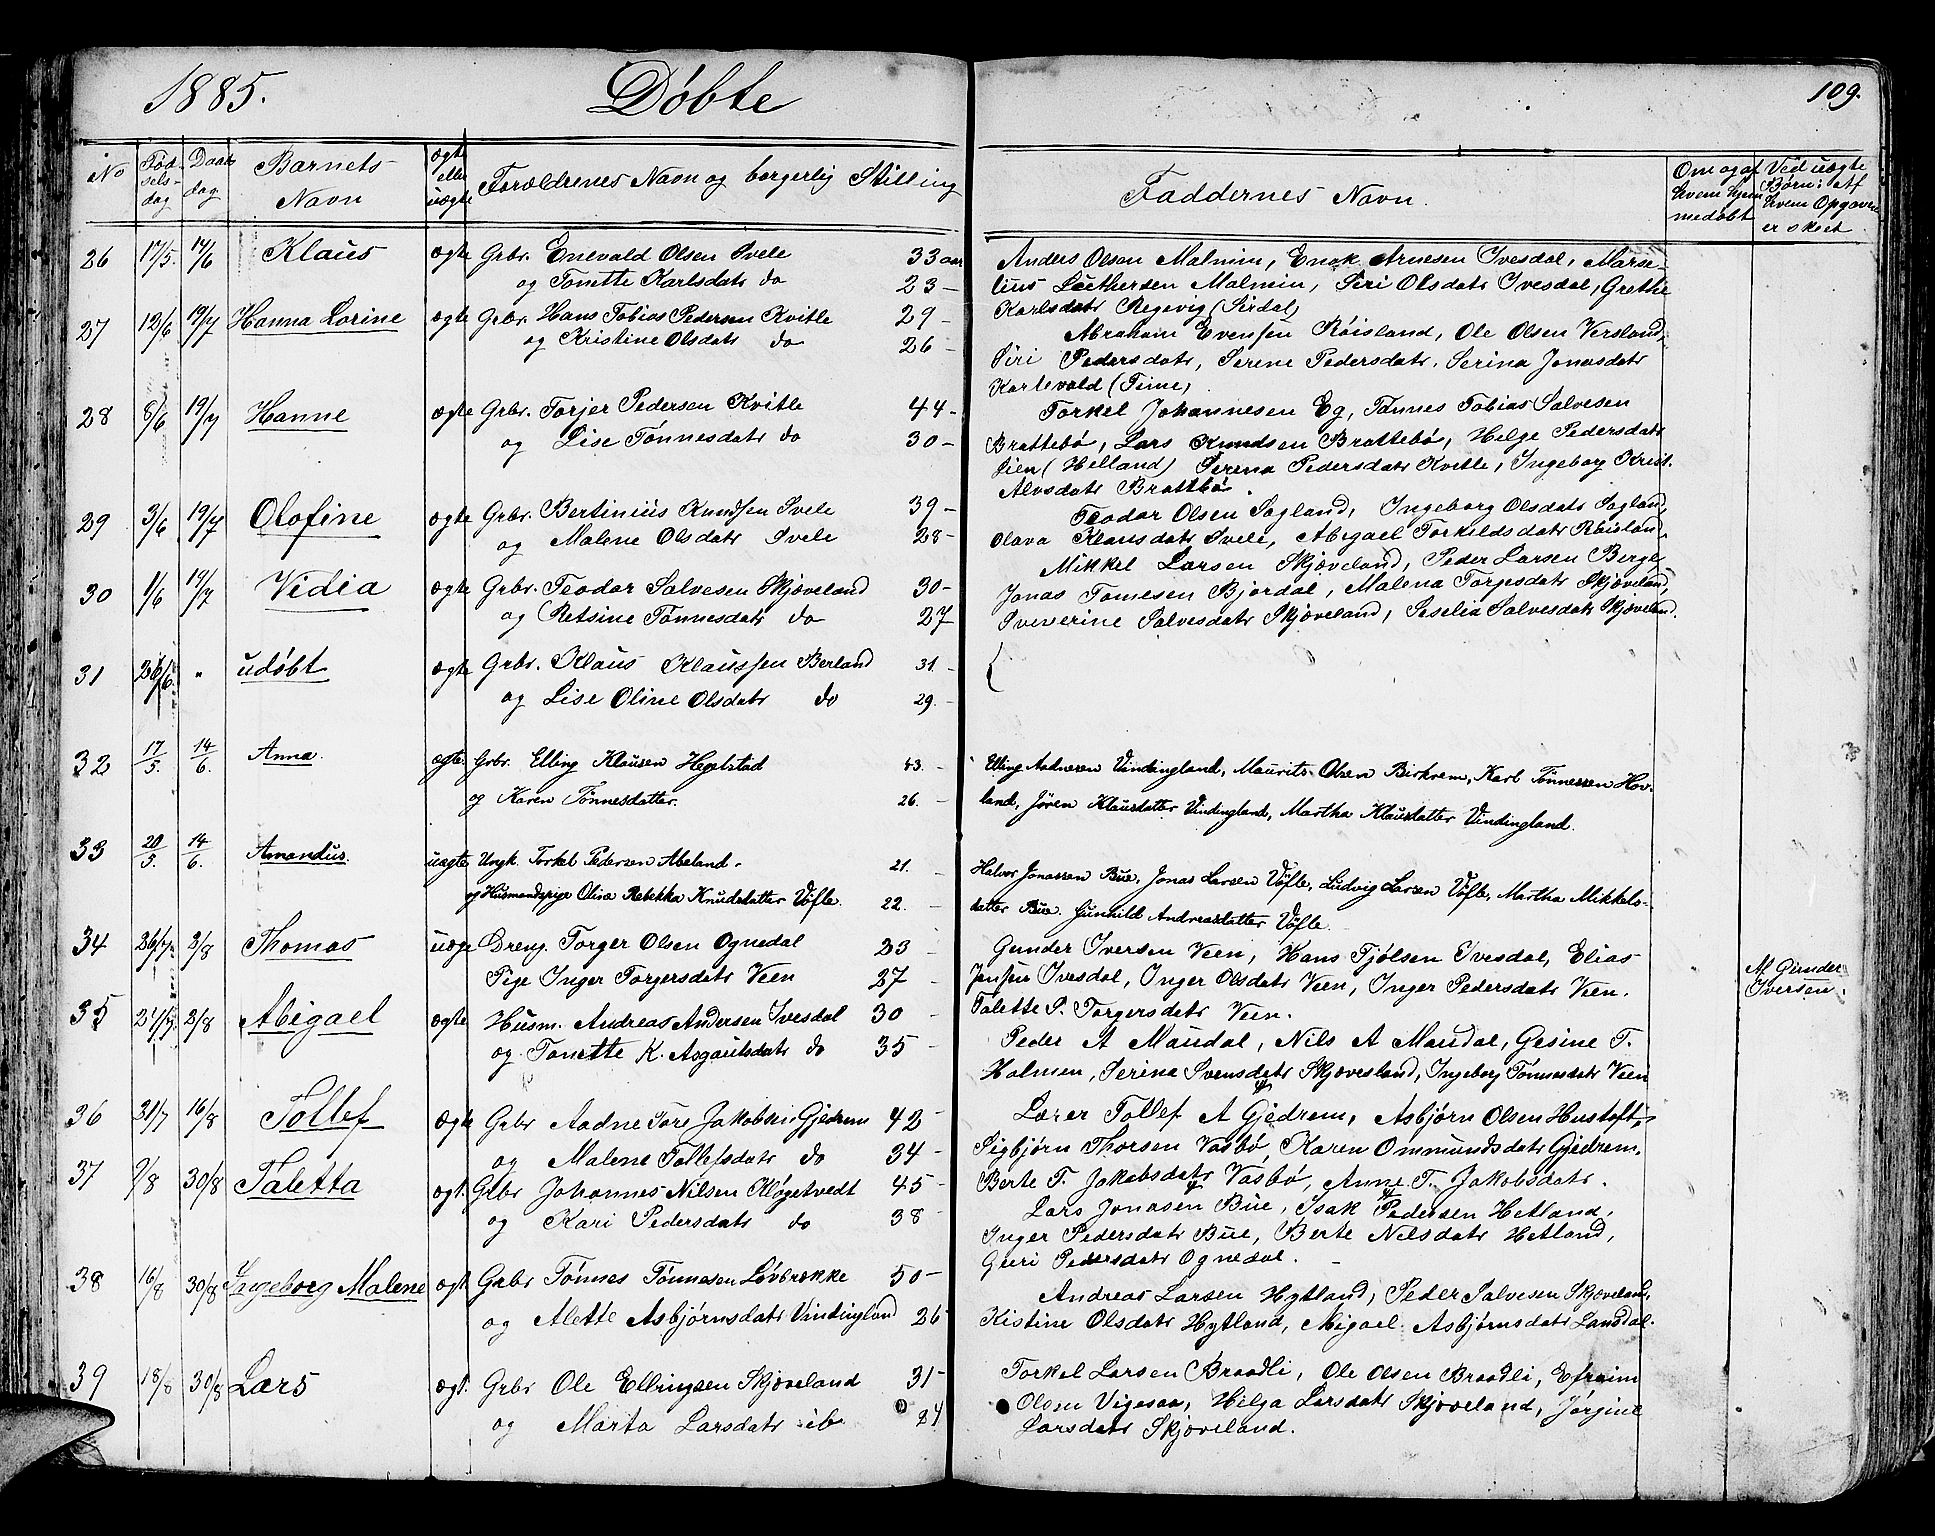 1885. Døbte
109.
No Fødselsdag Daabsdag Barnets Navn ægte eller uægte Forældrenes Navn og borgerlig Stilling
Faddernes Navn. Om og af hvem hjemmedøbt Ved uægte Børn: Af hvem Opgaven er skeet.
26 17/5. 14/6 Klaus ægte Grbr. Enevald Olsen Svele 33 aar
og Tonette Karlsdatr do 23 -
Anders Olsen Malmin, Enok Arnesen Ivesdal, Marse-
lius Luthersen Malmin, Siri Olsdatr Ivesdal, Grethe
Karlsdatr Regevig (Sirdal)
27 12/6 19/7 Hanna Lorine ægte Grbr. Hans Tobias Pedersen Kvitle 29 -
og Kristine Olsdatr do 26 -
Abraham Evensen Røisland, Ole Olsen Versland,
Siri Pedersdatr, Serene Pedersdatr, Serina Jonasdatr
Kartevold (Time)
28 8/6 19/7 Hanne ægte Grbr. Torjer Pedersen Kvitle 44 -
og Lise Tønnesdatr do 30 -
Torkel Johannesen Eg, Tønnes Tobias Salvesen
Brattebø, Lars Knudsen Brattebø, Helge Pedersdatr
Lien (Helland) Serena Pedersdatr Kvitle, Ingeborg Krist.
Alvsdatr Brattbø.
29 3/6 19/7 Olofine ægte Grbr. Bertinius Knudsen Svele 39 -
og Malene Olsdatr Svele 28 -
Teodor Olsen Sagland, Ingeborg Olsdatr Sagland,
Olava Klausdatr Svele, Abigael Torkildsdatr Røisland.
30 1/6 19/7 Vidia ægte Grbr. Teodor Salvesen Skjæveland 30 -
og Retsine Tønnesdatr do 27
Mikkel Larsen Skjæveland, Peder Larsen Berge,
Jonas Tomesen Bjordal, Malena Torjesdatr Skjæveland,
Sveverine Salvesdatr Skjæveland, Seselia Salvesdatr Skjæveland.
31 26/6. " udøbt ægte Grbr. Klaus Klaussen Berland 31 -
og Lise Oline Olsdatr do 29. -
32 17/5. 14/6. Anna. ægte. Grbr. Elling Klausen Hegelstad 43. -
og Karen Tønnesdatter. 26. -
Elling Aadnesen Vindingland, Maurits Olsen Birkrem, Karl Tønnessen Hov-
land, Jøren Klausdatter Vindingland, Martha Klausdatter Vindingland.
33 20/5. 14/6. Amandus. uægte Ungk. Torkel Pedersen Abeland. 21. -
og Husmandspige Olise Rebekka Knudsdatter Vøfle. 22. -
Halvor Jonassen Bue, Jonas Larsen Vøfle, Ludvig Larsen Vøfle, Martha Mikkels-
datter Bue. Gunhild Andreasdatter Vøfle.
34 26/7. 2/8 Thomas uæge Dreng. Torger Olsen Ognedal 23 -
Pige Inger Torgersdatr Veen 27 -
Gunder Iversen Veen, Hans Tjølsen Ivesdal, Elias
Jensen Ivesdal, Inger Olsdatr Veen, Inger Pedersdatr Veen.
Talette P. Torgersdatr Veen.
Af Gunder Iversen.
35 21/7. 2/8 Abigael ægte Husm. Andreas Andersen Ivesdal 30 -
og Tonette K. Asgautsdatr do 35 -
Peder A Maudal, Nils A Maudal, Gesine T.
Holmen, Serina Svensdatr Skjævesland, Ingeborg Tønnesdatr Veen
36 21/7 16/8 Tollef Ægte Grbr Aadne Tore Jakobsen Gjedrem 42 -
og Malene Tollefsdatr do 34 -
Lærer Tollef A Gjedrem, Asbjørn Olsen Hustoft,
Sigbjørn Thorsen Vasbø, Karen Ommundsdatr Gjedrem.
Berte T. Jakobsdatr Vasbø, Anne T. Jakobsdatr.
37 9/8 30/8 Taletta ægt. Grbr Johannes Nilsen Kløgetvedt 45 -
og Kari Pedersdatr do 38 -
Lars Jonasen Bue, Isak Pedersen Hetland,
Inger Pedersdatr Bue, Berte Nilsdatr Hetland,
Guri Pedersdatr Ognedal.
38 16/8 30/8 Ingeborg Malene ægt Grbr Tønnes Tønnesen Løvbrække 50 -
og Alette Asbjørnsdatr Vindingland 26
Andreas Larsen Hytland, Peder Salvesen Skjæveland,
Kistine Olsdatr Hytland, Abigael Asbjørnsdatr Landdal.
39 18/8 30/8 Lars ægt. Grbr Ole Ellingsen Skjæveland 31 -
og Marta Larsdatr ib 24
Torkel Larsen Braadli, Ole Olsen Braadli, Efraim
Olsen Vigesaa, Helga Larsdatr Skjæveland, Jørgine
Larsdatr Skjæveland.